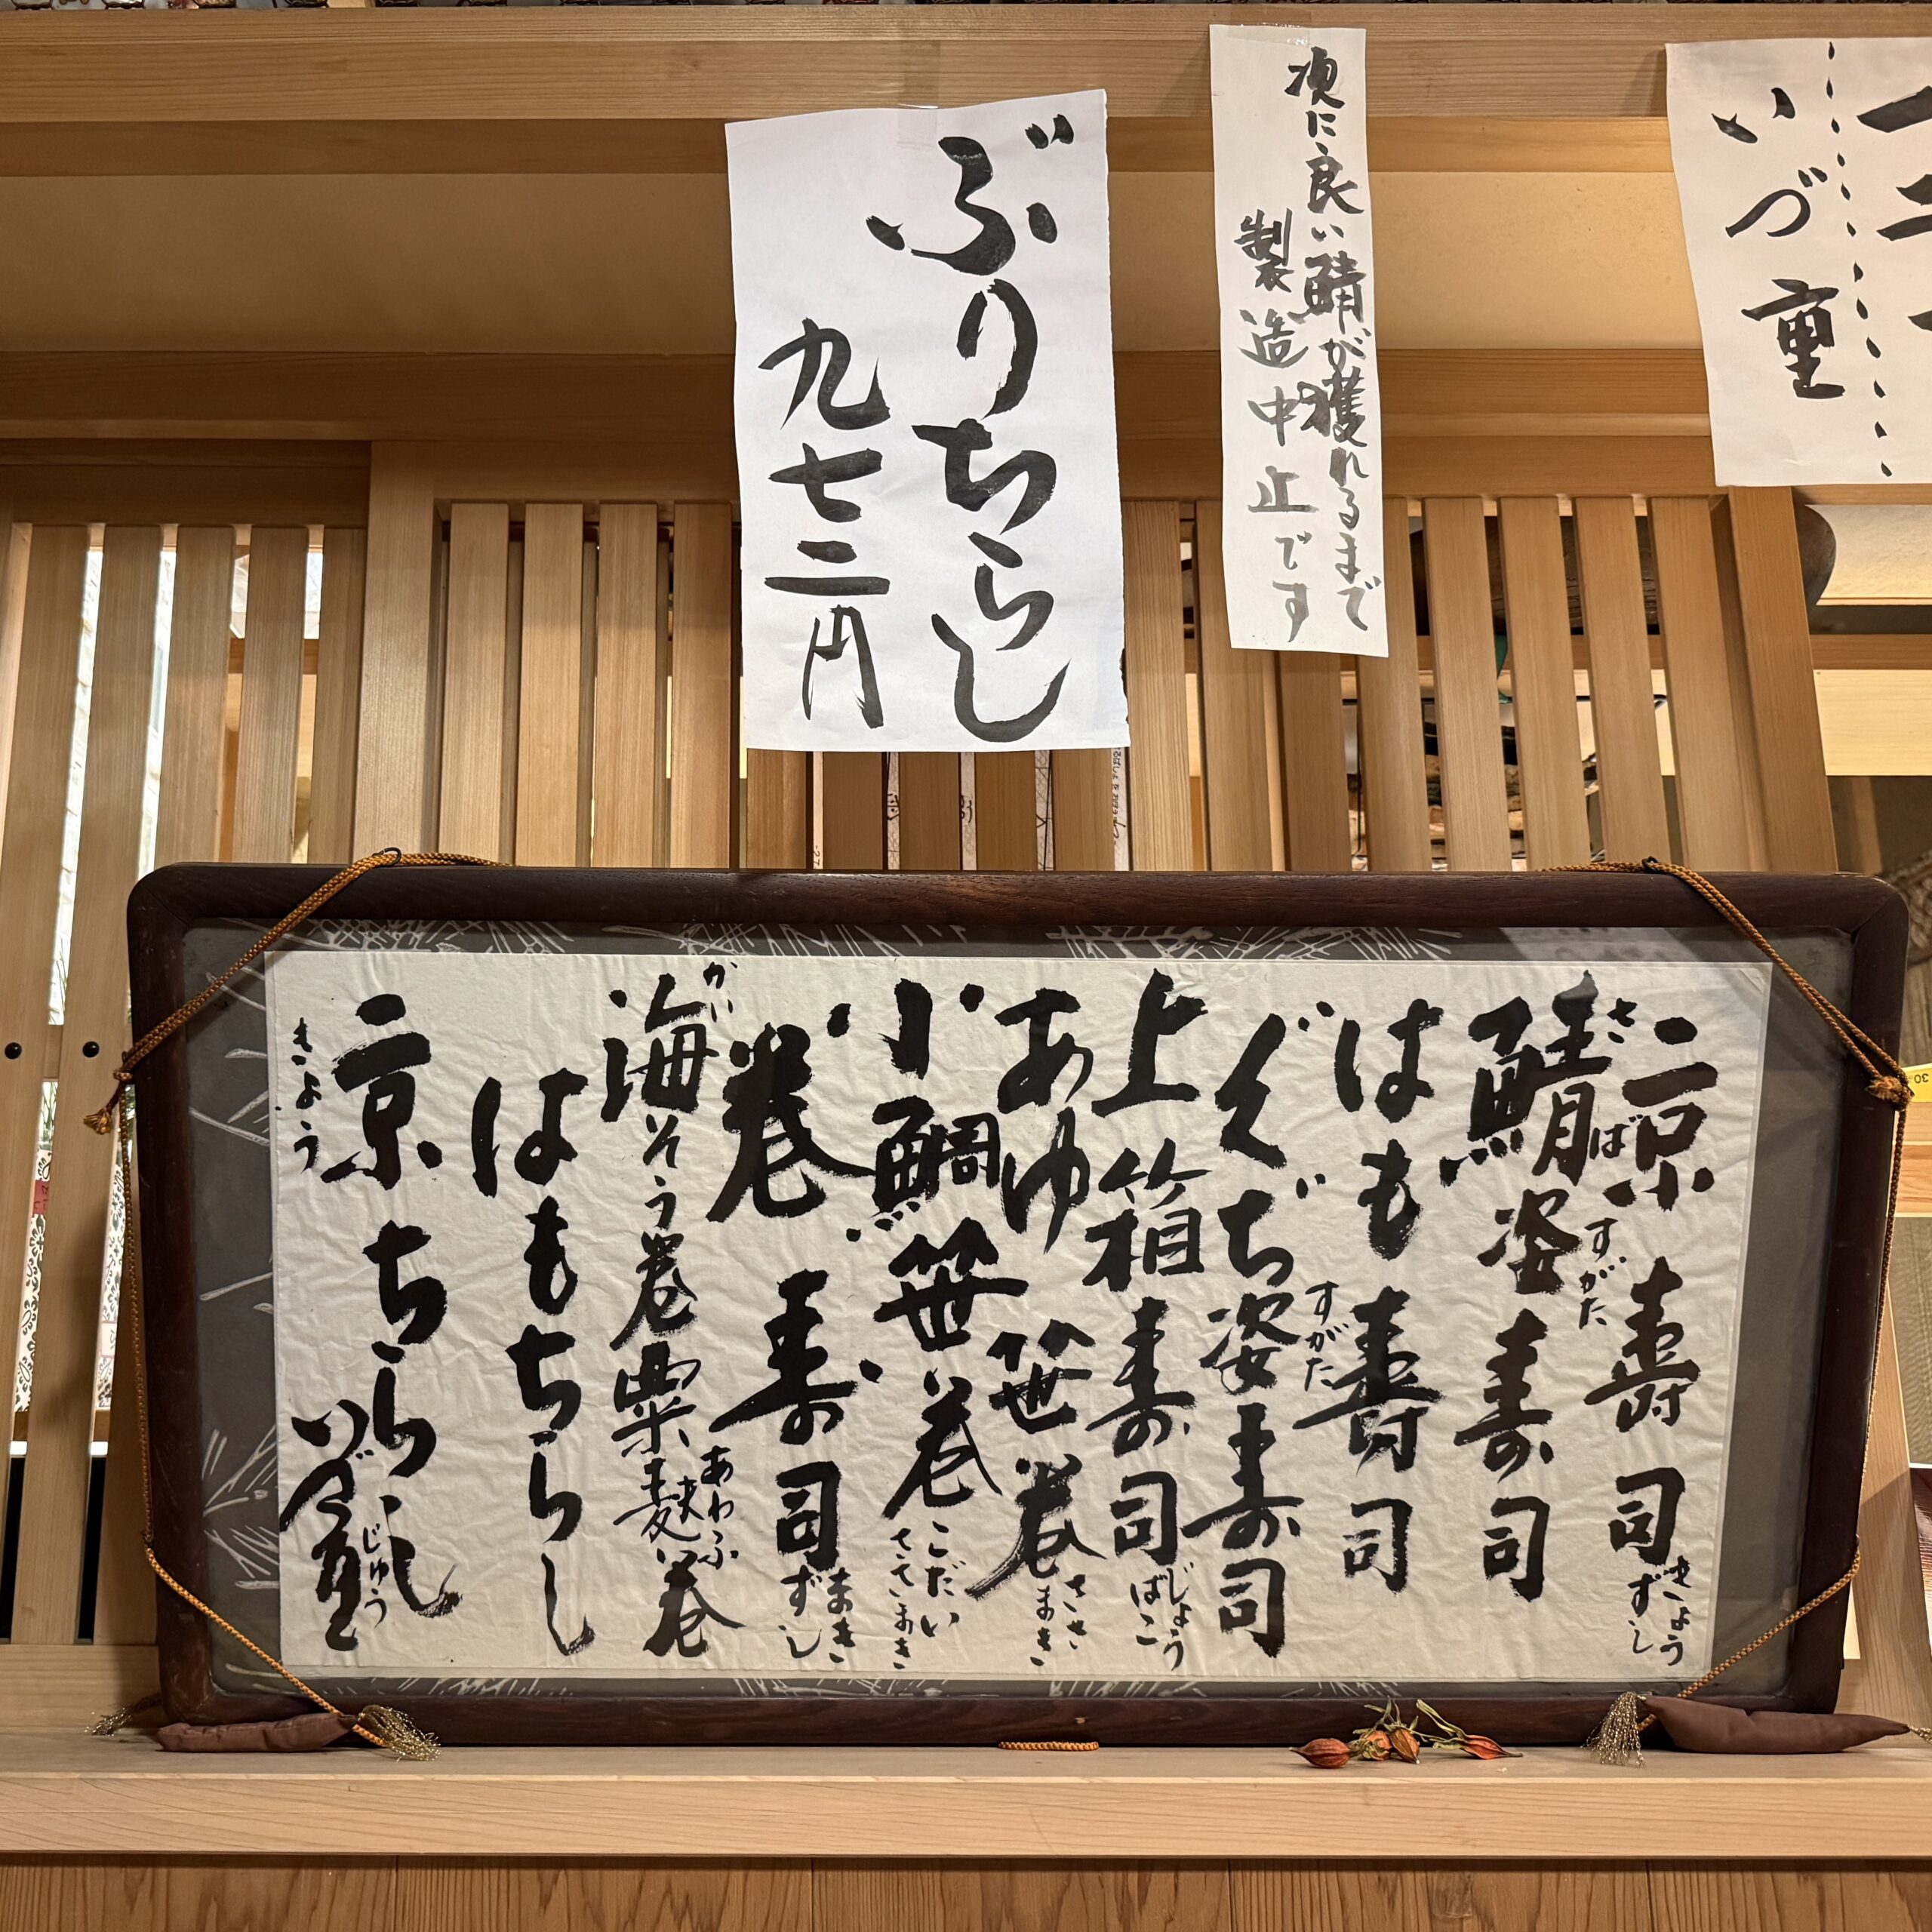 いづ重
次に良い鯖が獲れるまで
製造中止です
ぶりちらし
九七二円
京寿司 きょうずし
鯖姿寿司 さばすがた
はも寿司
ぐぢ姿寿司 すがた
上箱寿司 じょうばこ
あゆ笹巻 ささまき
小鯛笹巻 こだいささまき
巻寿司 まきずし
海そう巻 粟麸巻 かい あわふ
はもちらし
京ちらし きょう
いづ重 じゅう